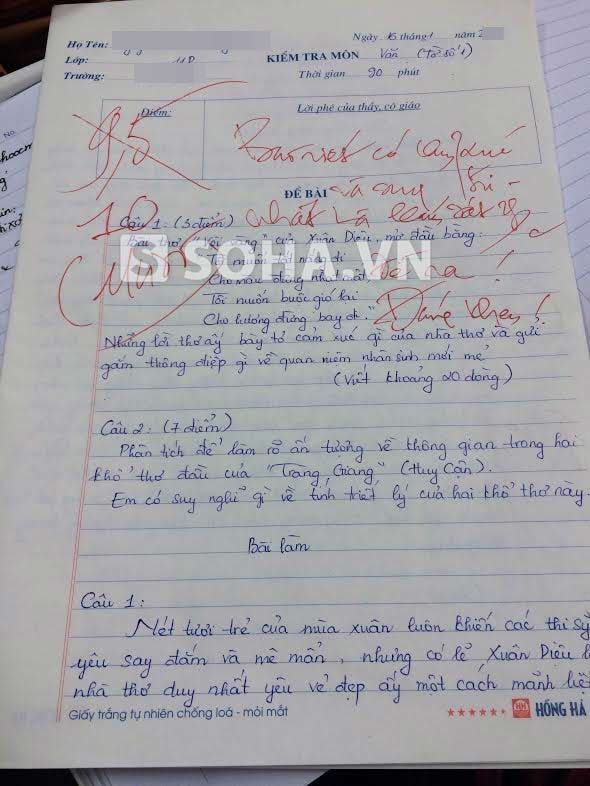 Ngày 15 tháng 1 năm 2
Họ Tên:
KIỂM TRA MÔN Văn (Tờ số 1)
Lớp: 11D
Trường:
Thời gian 90 phút
Điểm:
Lời phê của thầy, cô giáo
9,5
10
(Mười)
Bài viết có cảm xúc
và suy
Đáng khen!
ĐỀ BÀI
Câu 1: (3 điểm)
Bài thơ "Vội vàng" của Xuân Diệu, mở đầu bằng:
"Tôi muốn tắt nắng đi
Cho màu đừng nhạt mất
Tôi muốn buộc gió lại
Cho hương đừng bay đi."
SOHA.VN
Những lời thơ ấy bày tỏ cảm xúc gì của nhà thơ và gửi
gắm thông điệp gì về quan niệm nhân sinh mới mẻ
(Viết khoảng 20 dòng)
Câu 2: (7 điểm)
Phân tích để làm rõ ấn tượng về không gian trong hai
khổ thơ đầu của "Tràng Giang" (Huy Cận).
Em có suy nghĩ gì về tính triết lý của hai khổ thơ này.
Bài làm
Câu 1:
Nét tươi trẻ của mùa xuân luôn khiến các thi sỹ
yêu say đắm và mê mẩn, nhưng có lẽ, Xuân Diệu l
nhà thơ duy nhất yêu vẻ đẹp ấy một cách mãnh liệ
Giấy trắng tự nhiên chống loá - mỏi mắt
HH HỒNG HÀ